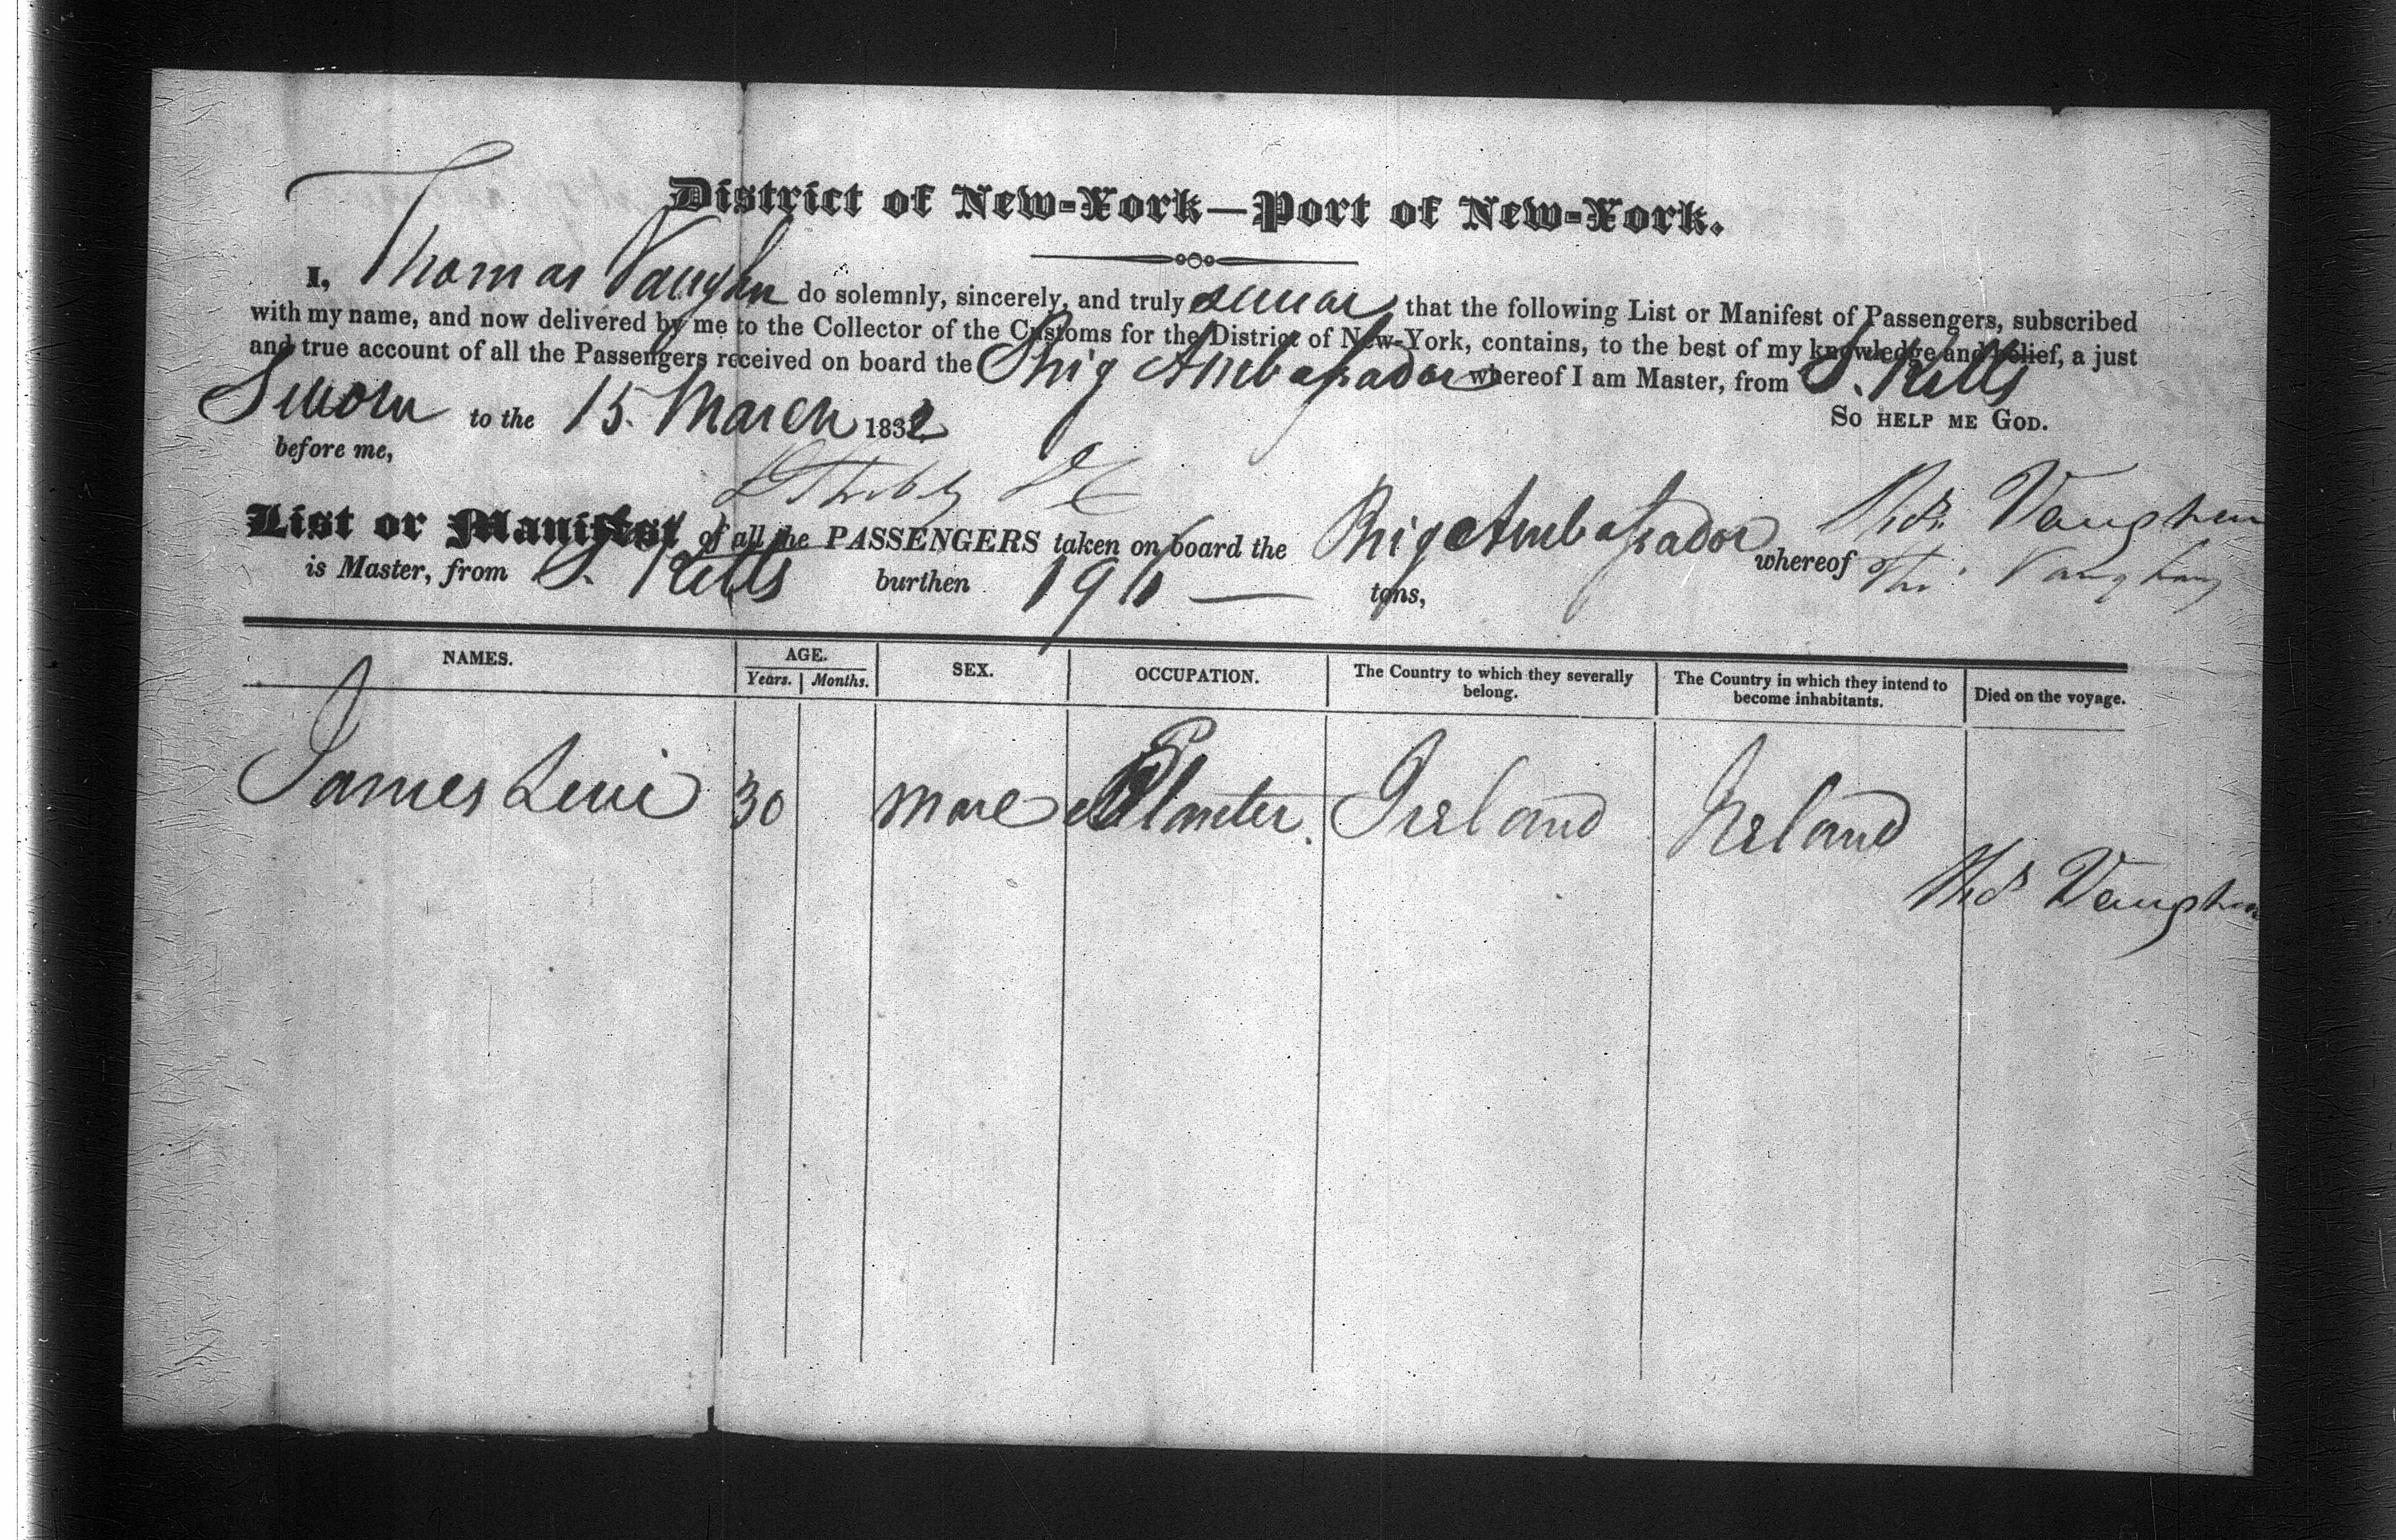 District of New-York—Port of New-York.
I, Thomas Vaughn do solemnly, sincerely, and truly swear that the following List or Manifest of Passengers, subscribed
with my name, and now delivered by me to the Collector of the Customs for the District of New-York, contains, to the best of my knowledge and belief, a just
and true account of all the Passengers received on board the Brig Ambassador whereof I am Master, from S. Kitts
Sworn to the 15 March 1832 So help me God.
before me,
Thos Vaughan
List or Manifest of all the PASSENGERS taken on board the Brig Ambassador whereof Thos Vaughan
is Master, from S. Kitts burthen tons,
NAMES. AGE. SEX. OCCUPATION. The Country to which they severally belong. The Country in which they intend to become inhabitants. Died on the voyage.
Years. Months.
James Levi 30 Male Planter. Ireland Ireland
Thos Vaughan